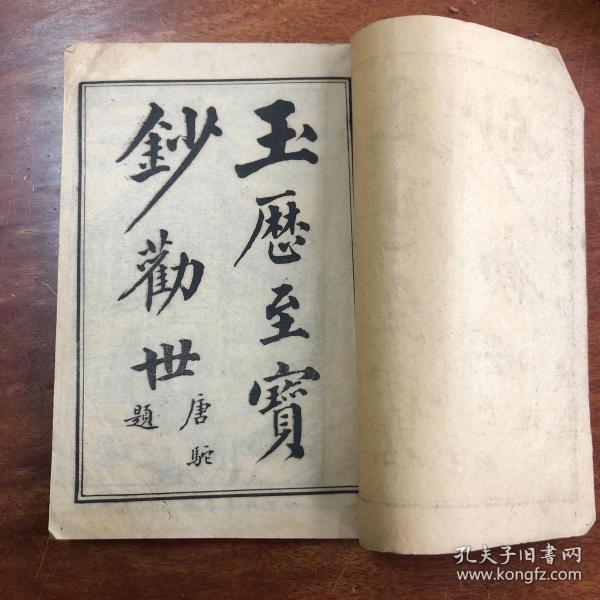 玉歷至寶
鈔勸世
唐駝
題
孔夫子旧书网
www.kongfz.com